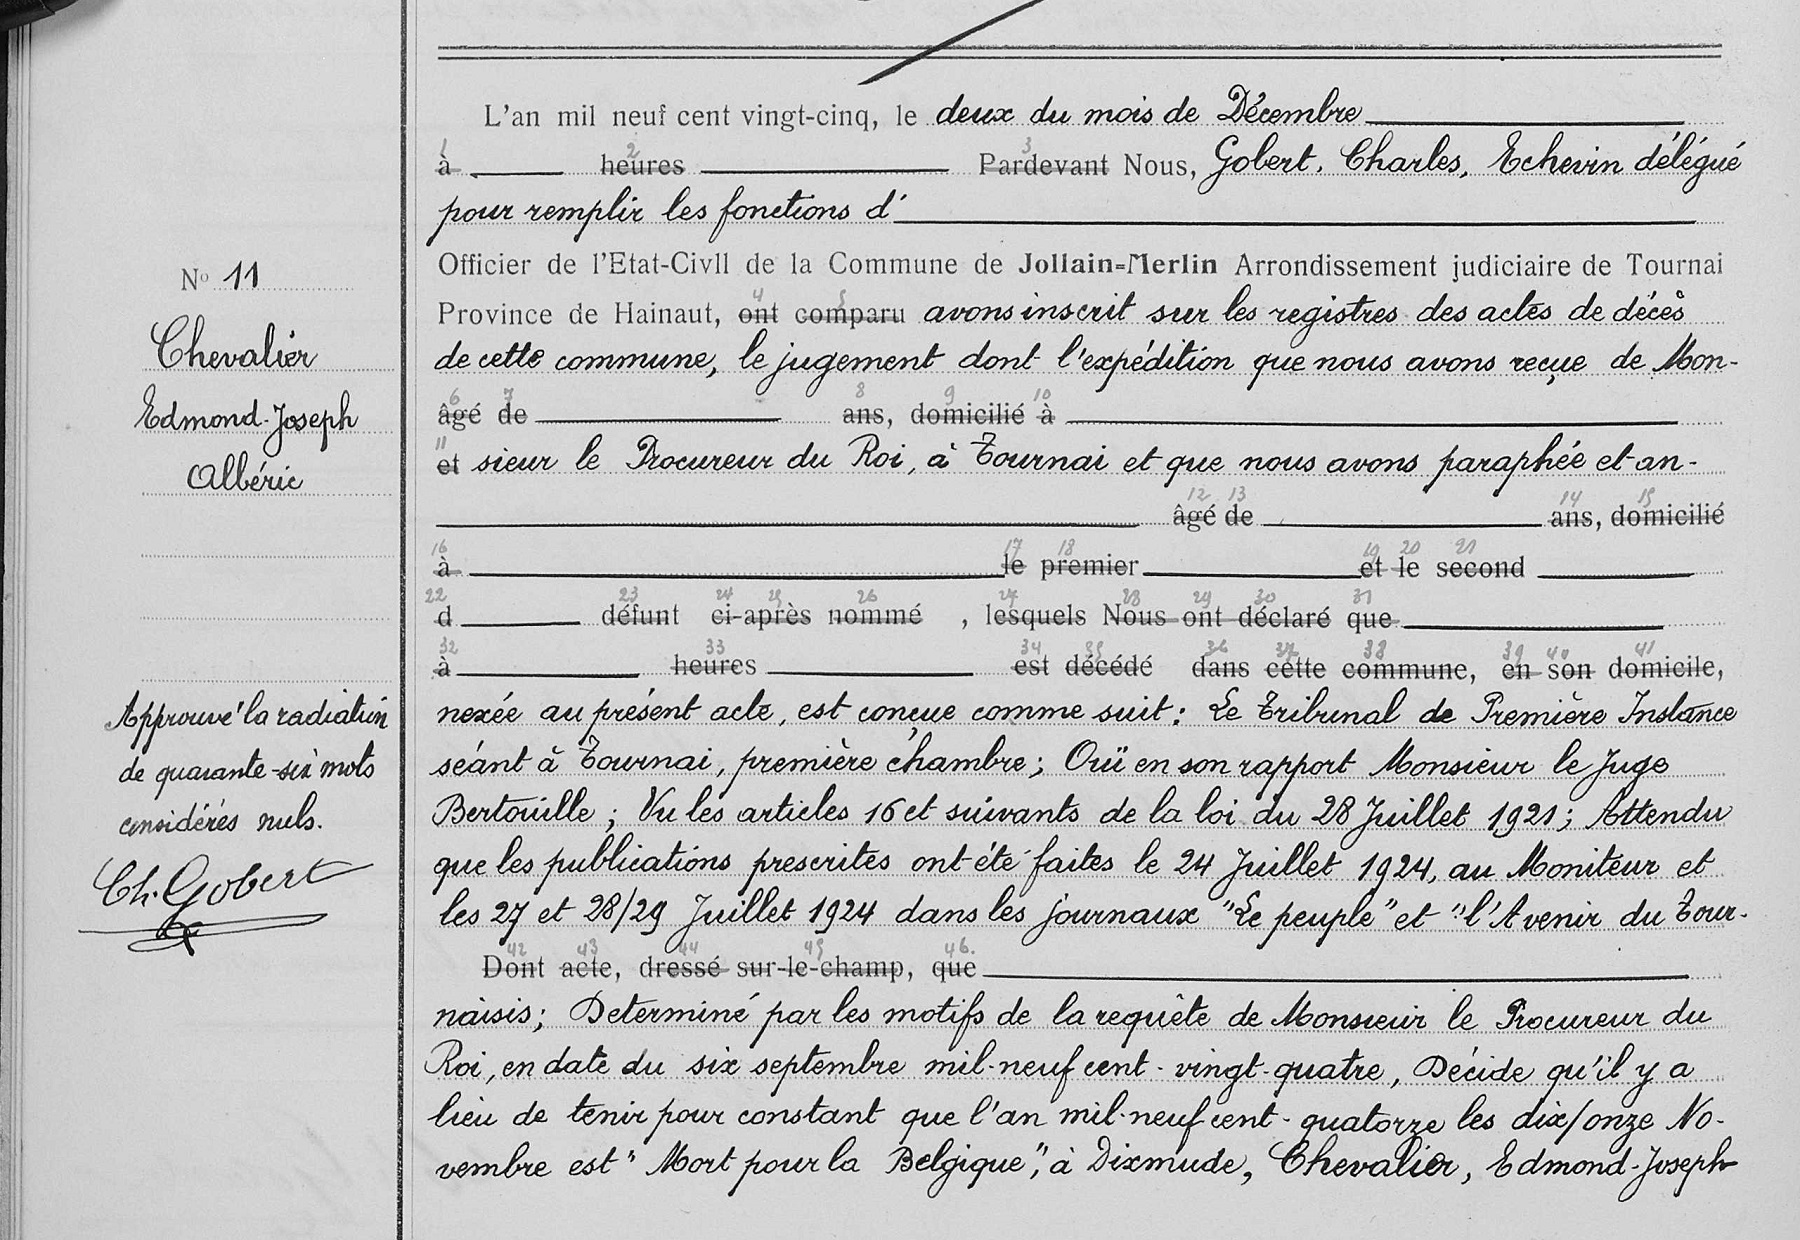 L'an mil neuf cent vingt-cinq, le deux du mois de Décembre
1 2 3
à heures Pardevant Nous, Gobert, Charles, Echevin délégué
pour remplir les fonctions d'
Officier de l'Etat-Civil de la Commune de Jollain=Merlin Arrondissement judiciaire de Tournai
4 5
Province de Hainaut, ont comparu avons inscrit sur les registres des actes de décès
de cette commune, le jugement dont l'expédition que nous avons reçue de Mon-
6 7 8 9 10
âgé de ans, domicilié à
11
et sieur le Procureur du Roi, à Tournai et que nous avons paraphée et an-
12 13 14 15
âgé de ans, domicilié
16 17 18 19 20 21
à le premier et le second
22 23 24 25 26 27 28 29 30 31
d défunt ci-après nommé , lesquels Nous ont déclaré que
32 33 34 35 36 37 38 39 40 41
à heures est décédé dans cette commune, en son domicile,
nexée au présent acte, est conçue comme suit : Le Tribunal de Première Instance
séant à Tournai, première chambre ; Ouï en son rapport Monsieur le Juge
Bertouille ; Vu les articles 16 et suivants de la loi du 28 Juillet 1921 ; Attendu
que les publications prescrites ont été faites le 24 Juillet 1924, au Moniteur et
les 27 et 28/29 Juillet 1924 dans les journaux "Le peuple" et "l'Avenir du Tour-
42 43 44 45 46.
Dont acte, dressé sur-le-champ, que
naisis ; Determiné par les motifs de la requête de Monsieur le Procureur du
Roi, en date du six septembre mil-neuf cent-vingt-quatre, Décide qu'il y a
lieu de tenir pour constant que l'an mil-neuf cent-quatorze les dix/onze No-
vembre est "Mort pour la Belgique", à Dixmude, Chevalier, Edmond-Joseph
No 11
Chevalier
Edmond-Joseph
Albéric
Approuvé la radiation
de quarante-six mots
considérés nuls.
Ch. Gobert